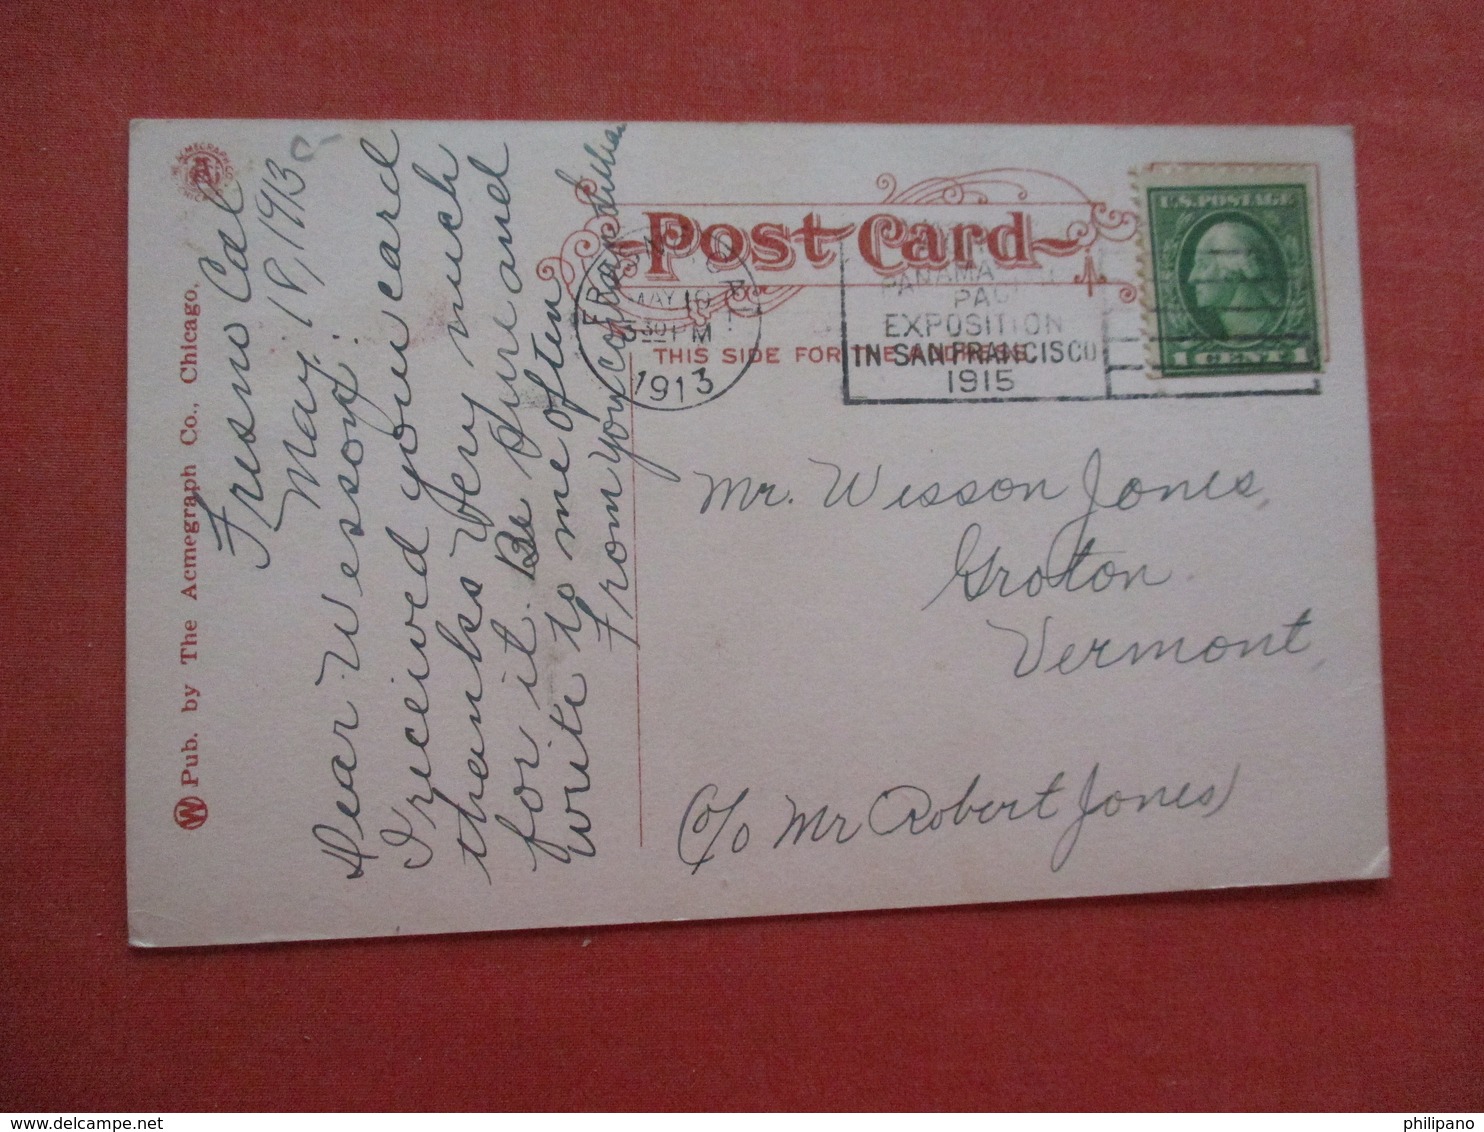 Pub. by The Acmegraph Co., Chicago.
Fresno Cal
May. 18, 1913.
Dear Wesson:
I received your card
thanks very much
for it. Be sure and
write to me often
From your
Post Card
THIS SIDE FOR THE ADDRESS
MAY 18
530 PM
1913
PANAMA
PACIFIC
EXPOSITION
IN SAN FRANCISCO
1915
U.S. POSTAGE
1 CENT 1
Mr. Wesson Jones,
Groton
Vermont,
c/o Mr Robert Jones
www.delcampe.net
philipano